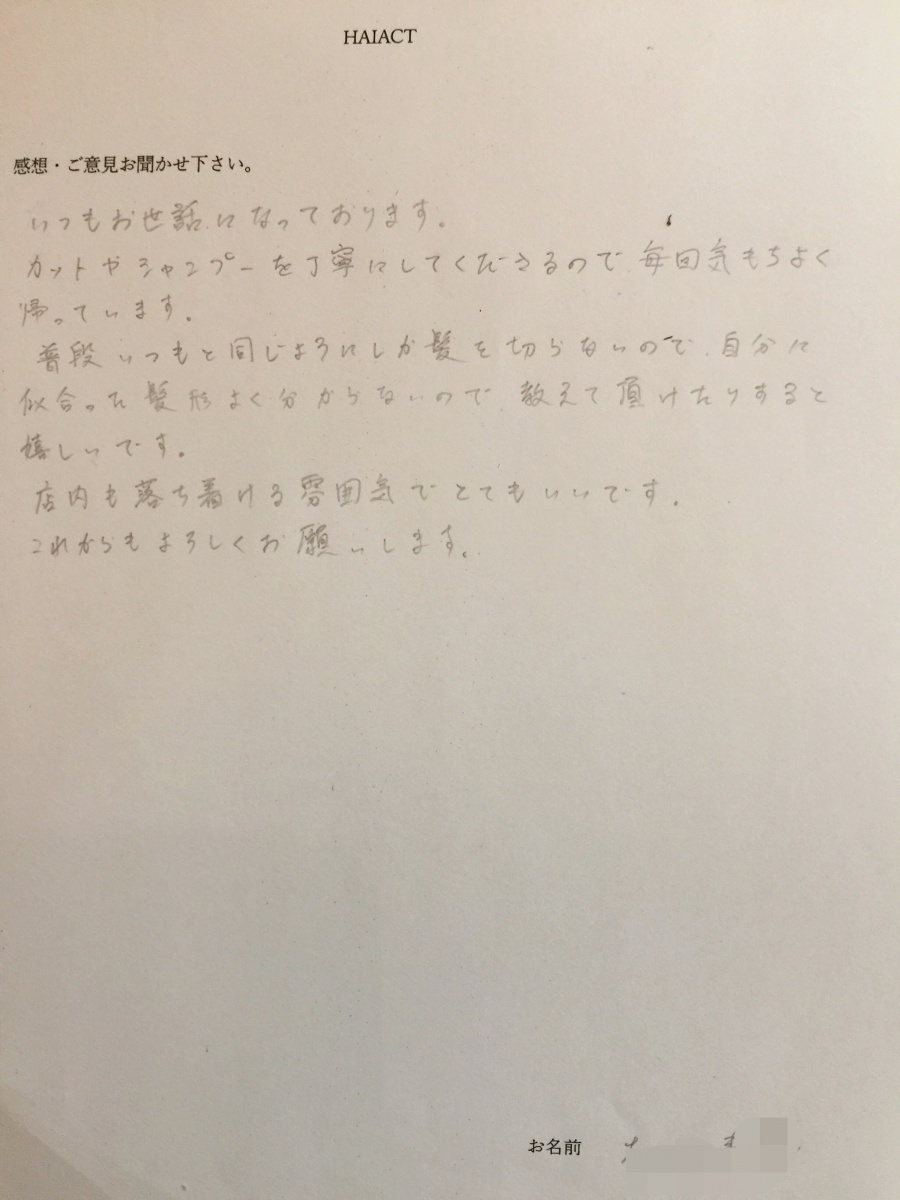 HAIACT
感想・ご意見お聞かせ下さい。
いつもお世話になっております。
カットやシャンプーを丁寧にしてくださるので毎回気もちよく
帰っています。
普段いつもと同じようにしか髪を切らないので、自分に
似合った髪形よく分からないので教えて頂けたりすると
嬉しいです。
店内も落ち着ける雰囲気でとてもいいです。
これからもよろしくお願いします。
お名前